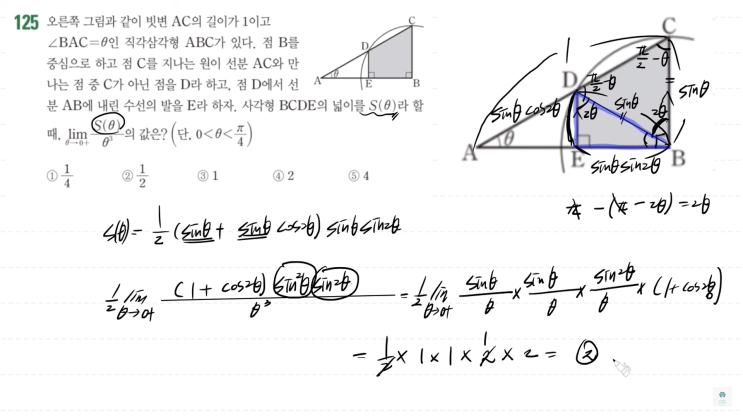 125 오른쪽 그림과 같이 빗변 AC의 길이가 1이고
∠BAC=θ인 직각삼각형 ABC가 있다. 점 B를
중심으로 하고 점 C를 지나는 원이 선분 AC와 만
나는 점 중 C가 아닌 점을 D라 하고, 점 D에서 선
분 AB에 내린 수선의 발을 E라 하자. 사각형 BCDE의 넓이를 S(θ)라 할
때, lim θ→0+ S(θ)/θ³의 값은? (단, 0<θ<π/4)
① 1/4 ② 1/2 ③ 1 ④ 2 ⑤ 4
C
D
A θ E B
C
1
π/2-θ
sinθ
D
π/2-θ
sinθcos2θ
sinθ
2θ
2θ
A θ E B
sinθsin2θ
π-(π-2θ)=2θ
S(θ)= 1/2 (sinθ+ sinθ cos2θ) sinθsin2θ
1/2 lim θ→0+ (1+cos2θ) sin²θ sin2θ / θ³ = 1/2 lim θ→0+ sinθ/θ × sinθ/θ × sin2θ/θ × (1+cos2θ)
= 1/2 × 1 × 1 × 2 × 2 = ②